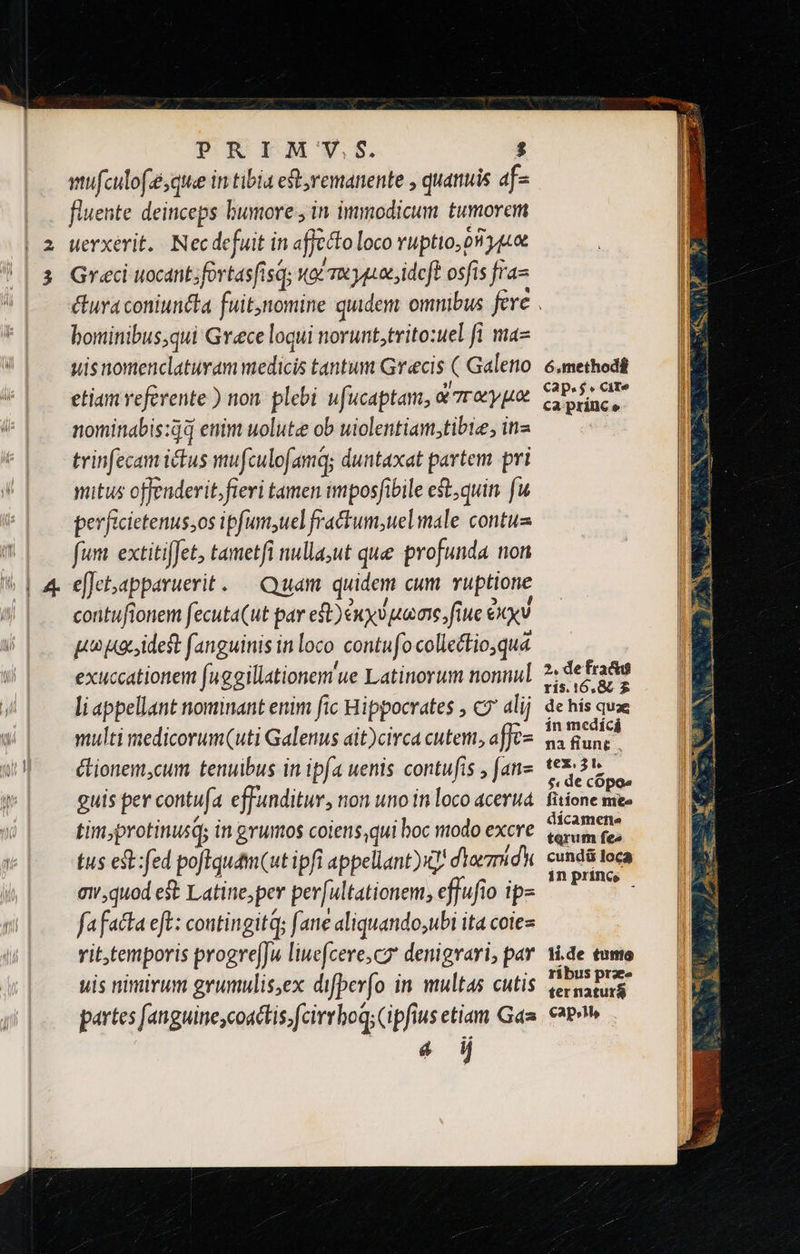 PRIMVS. 3
musculosæ, que in tibia est, remanente, quanuis af=
fluente deinceps humore, in immodicum tumorem
2 uerxerit. Nec defuit in affecto loco ruptio, ῥῆγμα
3 Græci uocant; fortassisq́; κάταγμα, idest ossis fra=
ctura coniuncta fuit, nomine quidem omnibus fere
hominibus, qui Græce loqui norunt, trito: uel si ma=
uis nomenclaturam medicis tantum Græcis ( Galeno
etiam referente ) non plebi usucaptam, ἄπαγμα
nominabis: q̃q̃ enim uolutæ ob uiolentiam, tibiæ, in=
trinsecam ictus musculosamq́; duntaxat partem pri
mitus offenderit, fieri tamen impossibile est, quin su
perficietenus, os ipsum, uel fractum, uel male contu=
sum extitisset, tametsi nulla, ut que profunda non
4 esset, apparuerit. Quam quidem cum ruptione
contusionem secuta (ut par est) ἐκχύμωσις, siue ἐκχύ
μωμα, idest sanguinis in loco contuso collectio, quã
exuccationem suggillationem'ue Latinorum nonnul
li appellant nominant enim sic Hippocrates, & alij
multi medicorum (uti Galenus ait) circa cutem, affe=
ctionem, cum tenuibus in ipsa uenis contusis, san=
guis per contusa effunditur, non uno in loco aceruã
tim, protinusq́; in grumos coiens, qui hoc modo excre
tus est: sed postquàm (ut ipsi appellant) κτ̀ διαπήδη
σιν, quod est Latine, per persultationem, effusio ip=
sa facta est: contingitq́; sane aliquando, ubi ita coie=
rit, temporis progressu liuescere, & denigrari, par
uis nimirum grumulis, ex disperso in multas cutis
partes sanguine, coactis, scirrhoq́; (ipsius etiam Ga=
a ij
6. methodi
cap. 5. cite
ca princ.
2. de fractu
ris. 16. & 5
de his quæ
in medicí
na fiunt
tex. 31.
5. de cõpo=
sitione me=
dicamen=
torum se=
cundũ loca
in princ.
li. de tumo
ribus præ=
ter naturã
cap. 11.